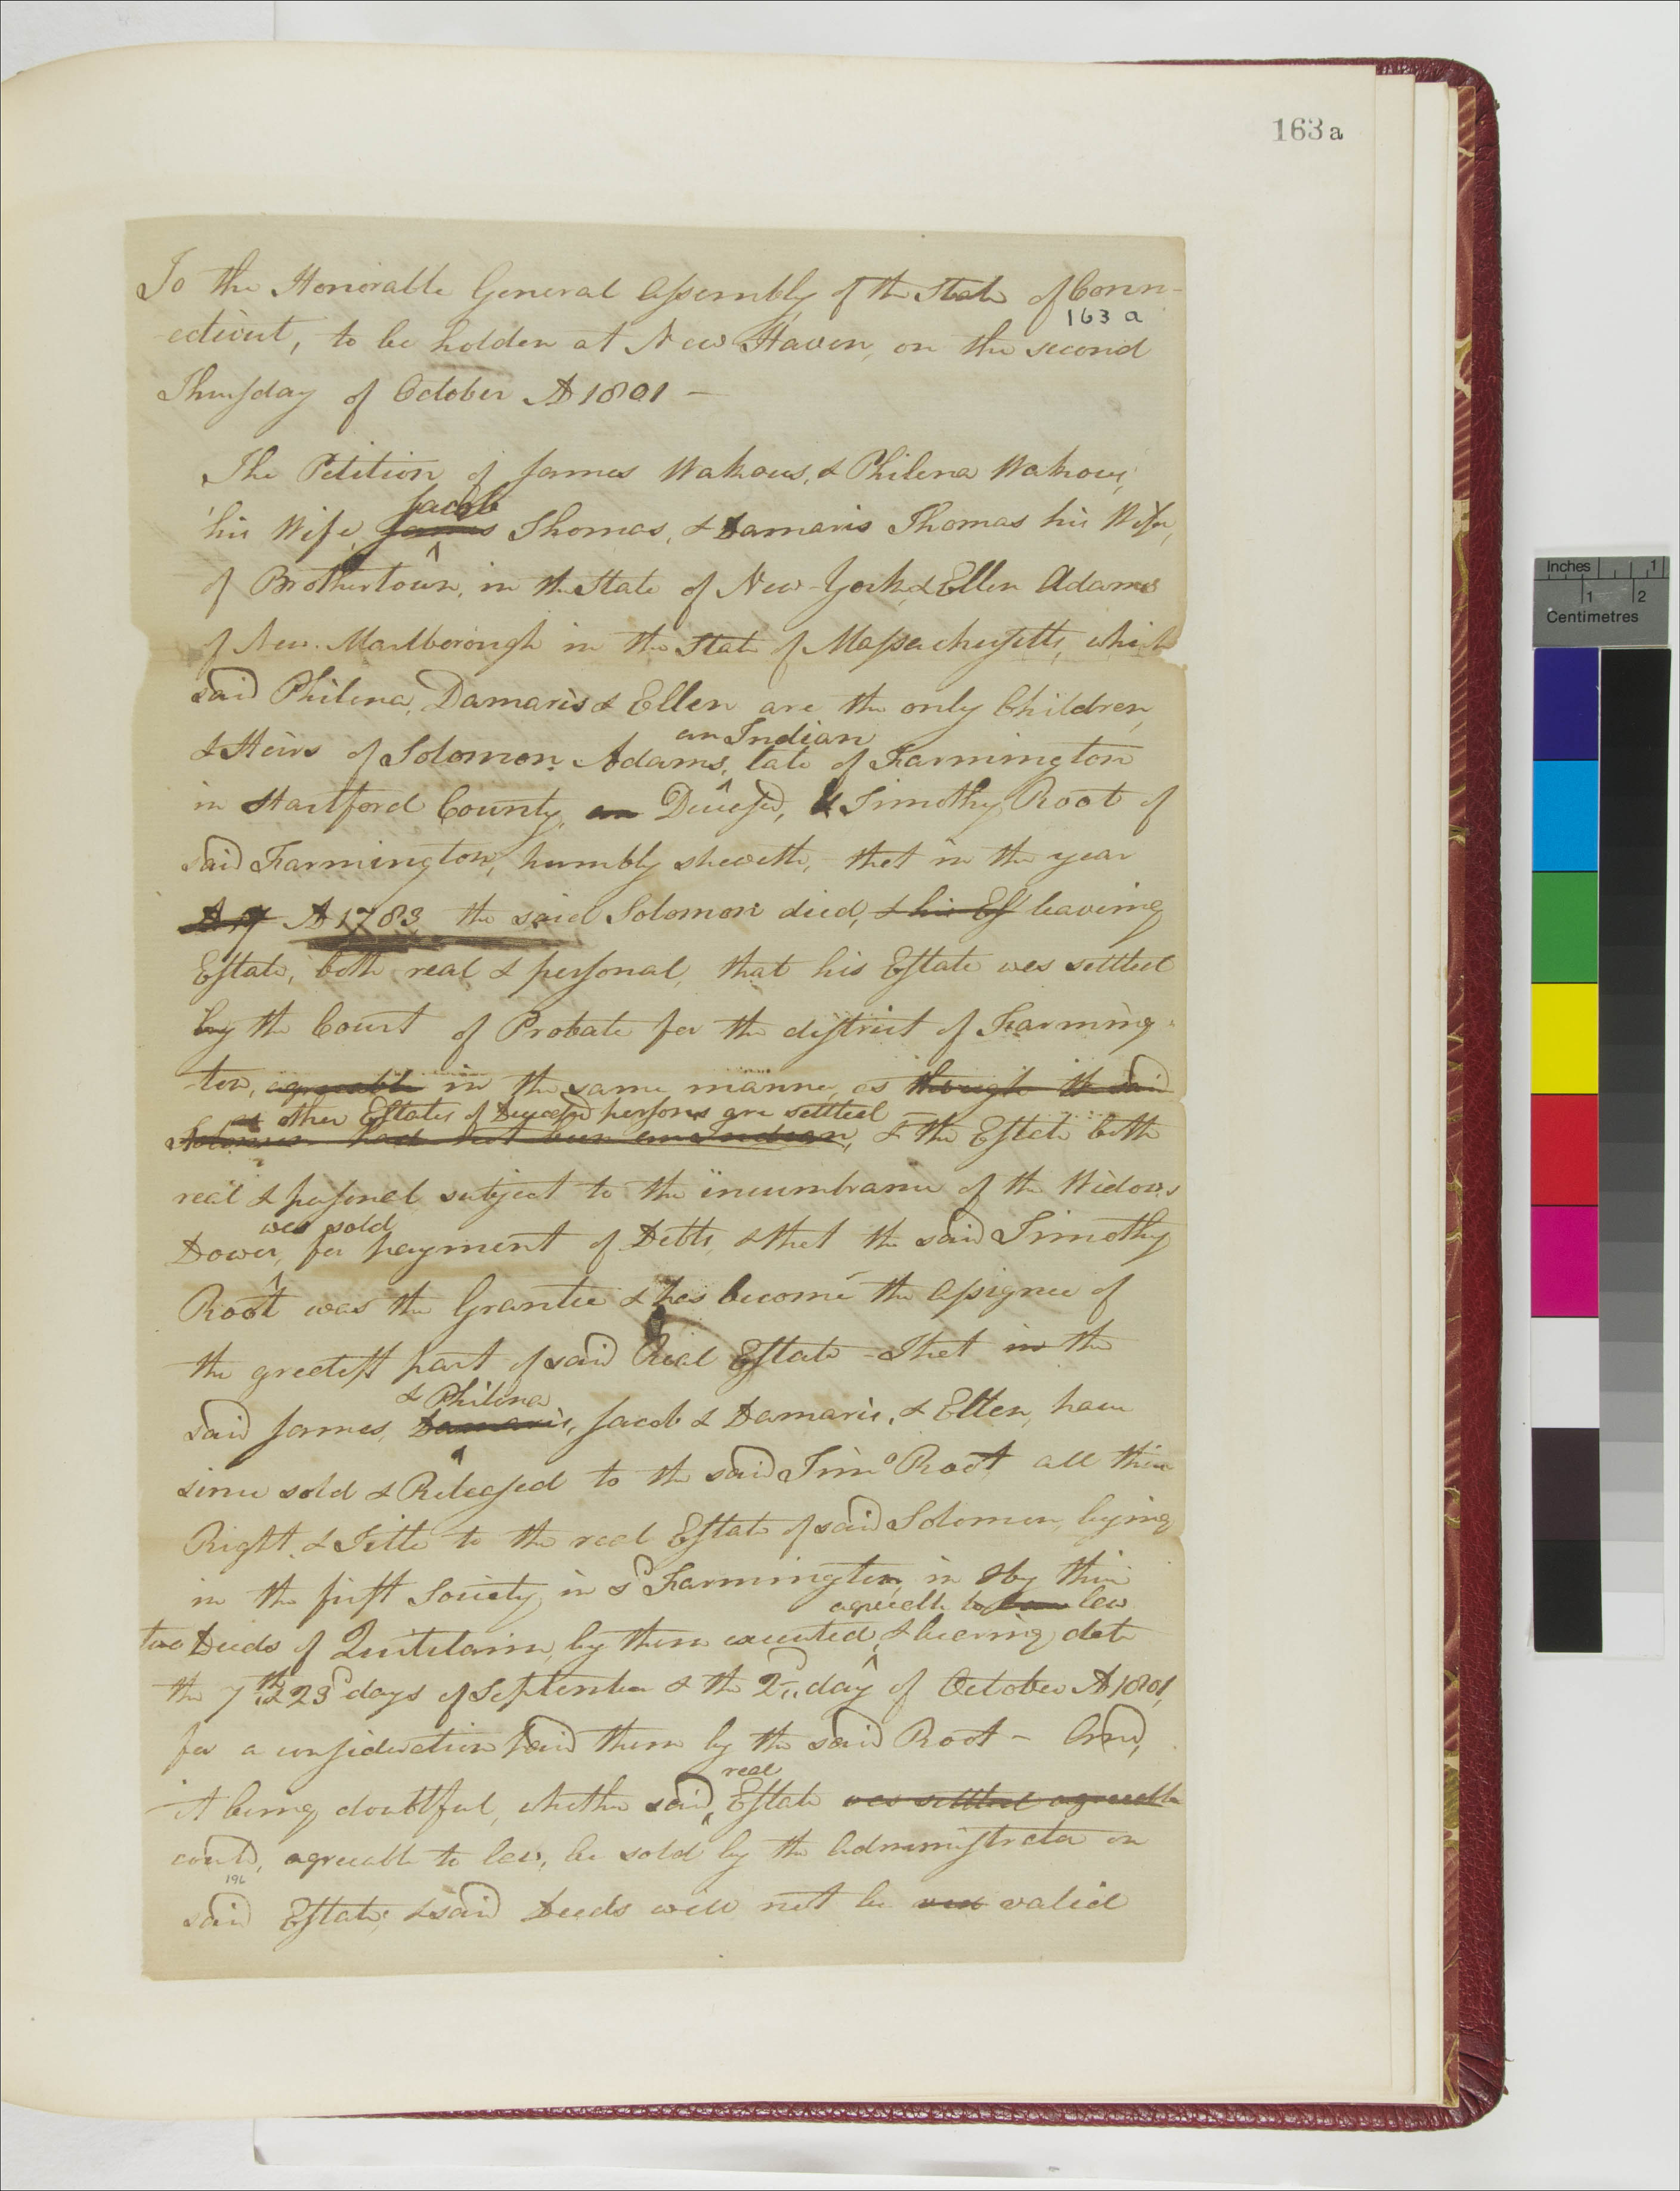 163 a
To the Honorable General Assembly of the State of Conn-
163 a
-ecticut, to be holden at New Haven, on the second
Thursday of October AD 1801 -
The Petition of James Wahaus, & Philena Wahaus,
Jacob
his Wife, James Thomas, & Damaris Thomas his Wife,
of Brothertown, in the State of New-York, & Ellen Adams
of New-Marlborough in the State of Massachusetts, which
said Philena, Damaris & Ellen are the only Children,
an Indian
& Heirs of Solomon Adams, late of Farmington
in Hartford County, an Deceased, & Timothy Root of
said Farmington, humbly sheweth, that in the year
AD 17 AD 1783 the said Solomon died, & his Es leaving
Estate, both real & personal, that his Estate was settled
by the Court of Probate for the district of Farming-
ton, agreeable in the same manner, as though the said
as other Estates of Deceased persons are settled
Solomon had not been an Indian, & the Estate both
real & personal subject to the incumbrance of the Widows
was sold
Dower, for payment of Debts, & that the said Timothy
Root was the Grantee & has become the assignee of
the greatest part of said Real Estate - That in the
& Philena
said James, Damaris, Jacob & Damaris, & Ellen, have
since sold & Released to the said Timo Root all their
Right & Title to the real Estate of said Solomon, lying
in the first Society in sd Farmington, in & by their
agreeable to law
two Deeds of Quitclaim, by them executed, & bearing date
the 7th & 23d days of September & the 2nd day of October AD 1801,
for a consideration paid them by the said Root - And,
real
it being doubtful, whether said Estate was settled agreeable
could, agreeable to law, be sold by the Administrator on
196
said Estate, & said Deeds will not be valid